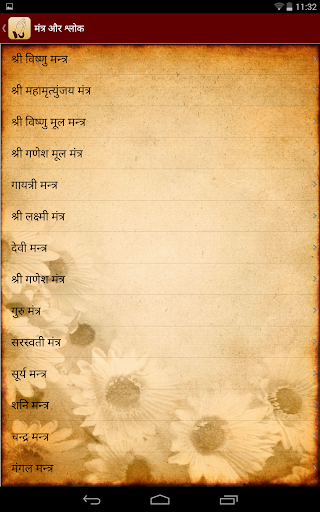 11:32
मंत्र और श्लोक
श्री विष्णु मन्त्र
श्री महामृत्युंजय मंत्र
श्री विष्णु मूल मन्त्र
श्री गणेश मूल मंत्र
गायत्री मन्त्र
श्री लक्ष्मी मंत्र
देवी मन्त्र
श्री गणेश मंत्र
गुरु मंत्र
सरस्वती मंत्र
सूर्य मन्त्र
शनि मन्त्र
चन्द्र मन्त्र
मंगल मन्त्र